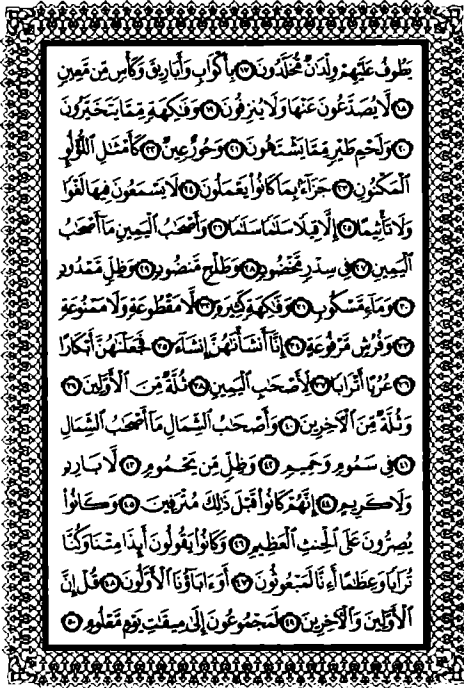 يَطُوفُ عَلَيْهِمْ وِلْدَٰنٌ مُّخَلَّدُونَ ١٧ بِأَكْوَابٍ وَأَبَارِيقَ وَكَأْسٍ مِّن مَّعِينٍ
١٨ لَّا يُصَدَّعُونَ عَنْهَا وَلَا يُنزِفُونَ ١٩ وَفَٰكِهَةٍ مِّمَّا يَتَخَيَّرُونَ
٢٠ وَلَحْمِ طَيْرٍ مِّمَّا يَشْتَهُونَ ٢١ وَحُورٌ عِينٌ ٢٢ كَأَمْثَٰلِ ٱللُّؤْلُؤِ
ٱلْمَكْنُونِ ٢٣ جَزَآءًۢ بِمَا كَانُوا۟ يَعْمَلُونَ ٢٤ لَا يَسْمَعُونَ فِيهَا لَغْوًا
وَلَا تَأْثِيمًا ٢٥ إِلَّا قِيلًا سَلَٰمًا سَلَٰمًا ٢٦ وَأَصْحَٰبُ ٱلْيَمِينِ مَآ أَصْحَٰبُ
ٱلْيَمِينِ ٢٧ فِى سِدْرٍ مَّخْضُودٍ ٢٨ وَطَلْحٍ مَّنضُودٍ ٢٩ وَظِلٍّ مَّمْدُودٍ
٣٠ وَمَآءٍ مَّسْكُوبٍ ٣١ وَفَٰكِهَةٍ كَثِيرَةٍ ٣٢ لَّا مَقْطُوعَةٍ وَلَا مَمْنُوعَةٍ
٣٣ وَفُرُشٍ مَّرْفُوعَةٍ ٣٤ إِنَّآ أَنشَأْنَٰهُنَّ إِنشَآءً ٣٥ فَجَعَلْنَٰهُنَّ أَبْكَارًا
٣٦ عُرُبًا أَتْرَابًا ٣٧ لِّأَصْحَٰبِ ٱلْيَمِينِ ٣٨ ثُلَّةٌ مِّنَ ٱلْأَوَّلِينَ ٣٩
وَثُلَّةٌ مِّنَ ٱلْءَاخِرِينَ ٤٠ وَأَصْحَٰبُ ٱلشِّمَالِ مَآ أَصْحَٰبُ ٱلشِّمَالِ
٤١ فِى سَمُومٍ وَحَمِيمٍ ٤٢ وَظِلٍّ مِّن يَحْمُومٍ ٤٣ لَّا بَارِدٍ
وَلَا كَرِيمٍ ٤٤ إِنَّهُمْ كَانُوا۟ قَبْلَ ذَٰلِكَ مُتْرَفِينَ ٤٥ وَكَانُوا۟
يُصِرُّونَ عَلَى ٱلْحِنثِ ٱلْعَظِيمِ ٤٦ وَكَانُوا۟ يَقُولُونَ أَئِذَا مِتْنَا وَكُنَّا
تُرَابًا وَعِظَٰمًا أَءِنَّا لَمَبْعُوثُونَ ٤٧ أَوَءَابَآؤُنَا ٱلْأَوَّلُونَ ٤٨ قُلْ إِنَّ
ٱلْأَوَّلِينَ وَٱلْءَاخِرِينَ ٤٩ لَمَجْمُوعُونَ إِلَىٰ مِيقَٰتِ يَوْمٍ مَّعْلُومٍ ٥٠